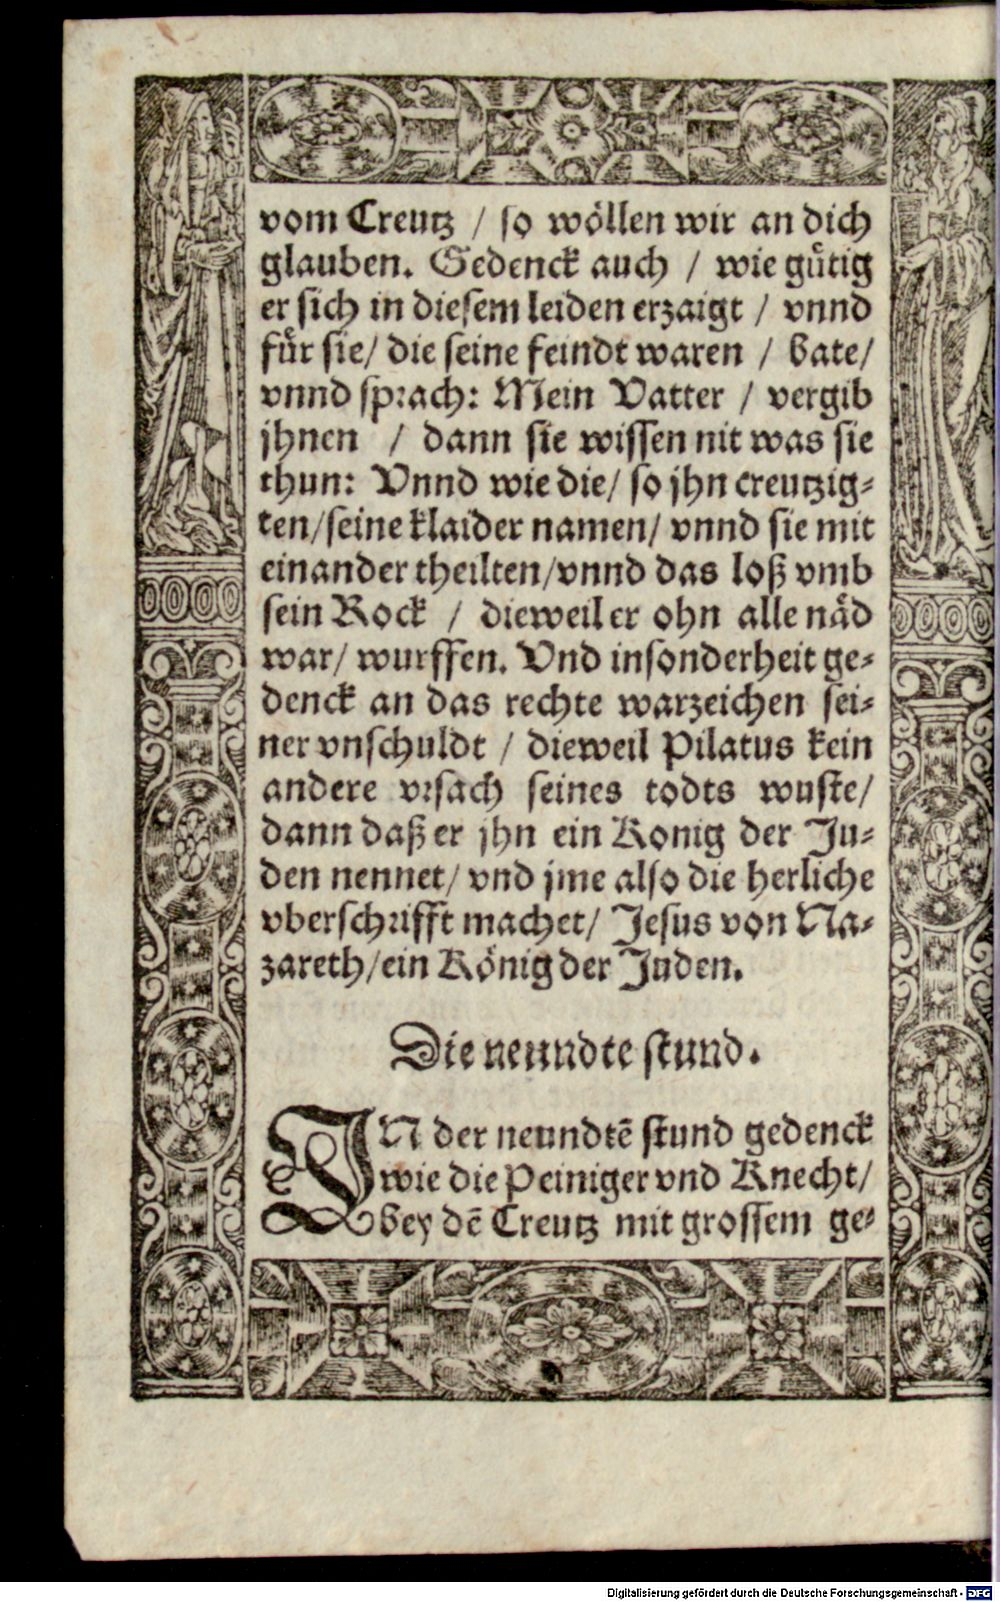 vom Creutz / so wöllen wir an dich
glauben. Gedenck auch / wie gütig
er sich in diesem leiden erzaigt / vnnd
für sie / die seine feindt waren / bate /
vnnd sprach: Mein Vatter / vergib
jhnen / dann sie wissen nit was sie
thun: Vnnd wie die / so jhn creutzig-
ten / seine klaider namen / vnnd sie mit
einander theilten / vnnd das loß vmb
sein Rock / dieweil er ohn alle näd
war / wurffen. Vnd insonderheit ge-
denck an das rechte warzeichen sei-
ner vnschuldt / dieweil Pilatus kein
andere vrsach seines todts wuste /
dann daß er jhn ein Konig der Ju-
den nennet / vnd jme also die herliche
vberschrifft machet / Jesus von Na-
zareth / ein König der Juden.
Die neundte stund.
IN der neundtē stund gedenck
wie die Peiniger vnd Knecht /
bey dē Creutz mit grossem ge-
Digitalisierung gefördert durch die Deutsche Forschungsgemeinschaft - DFG